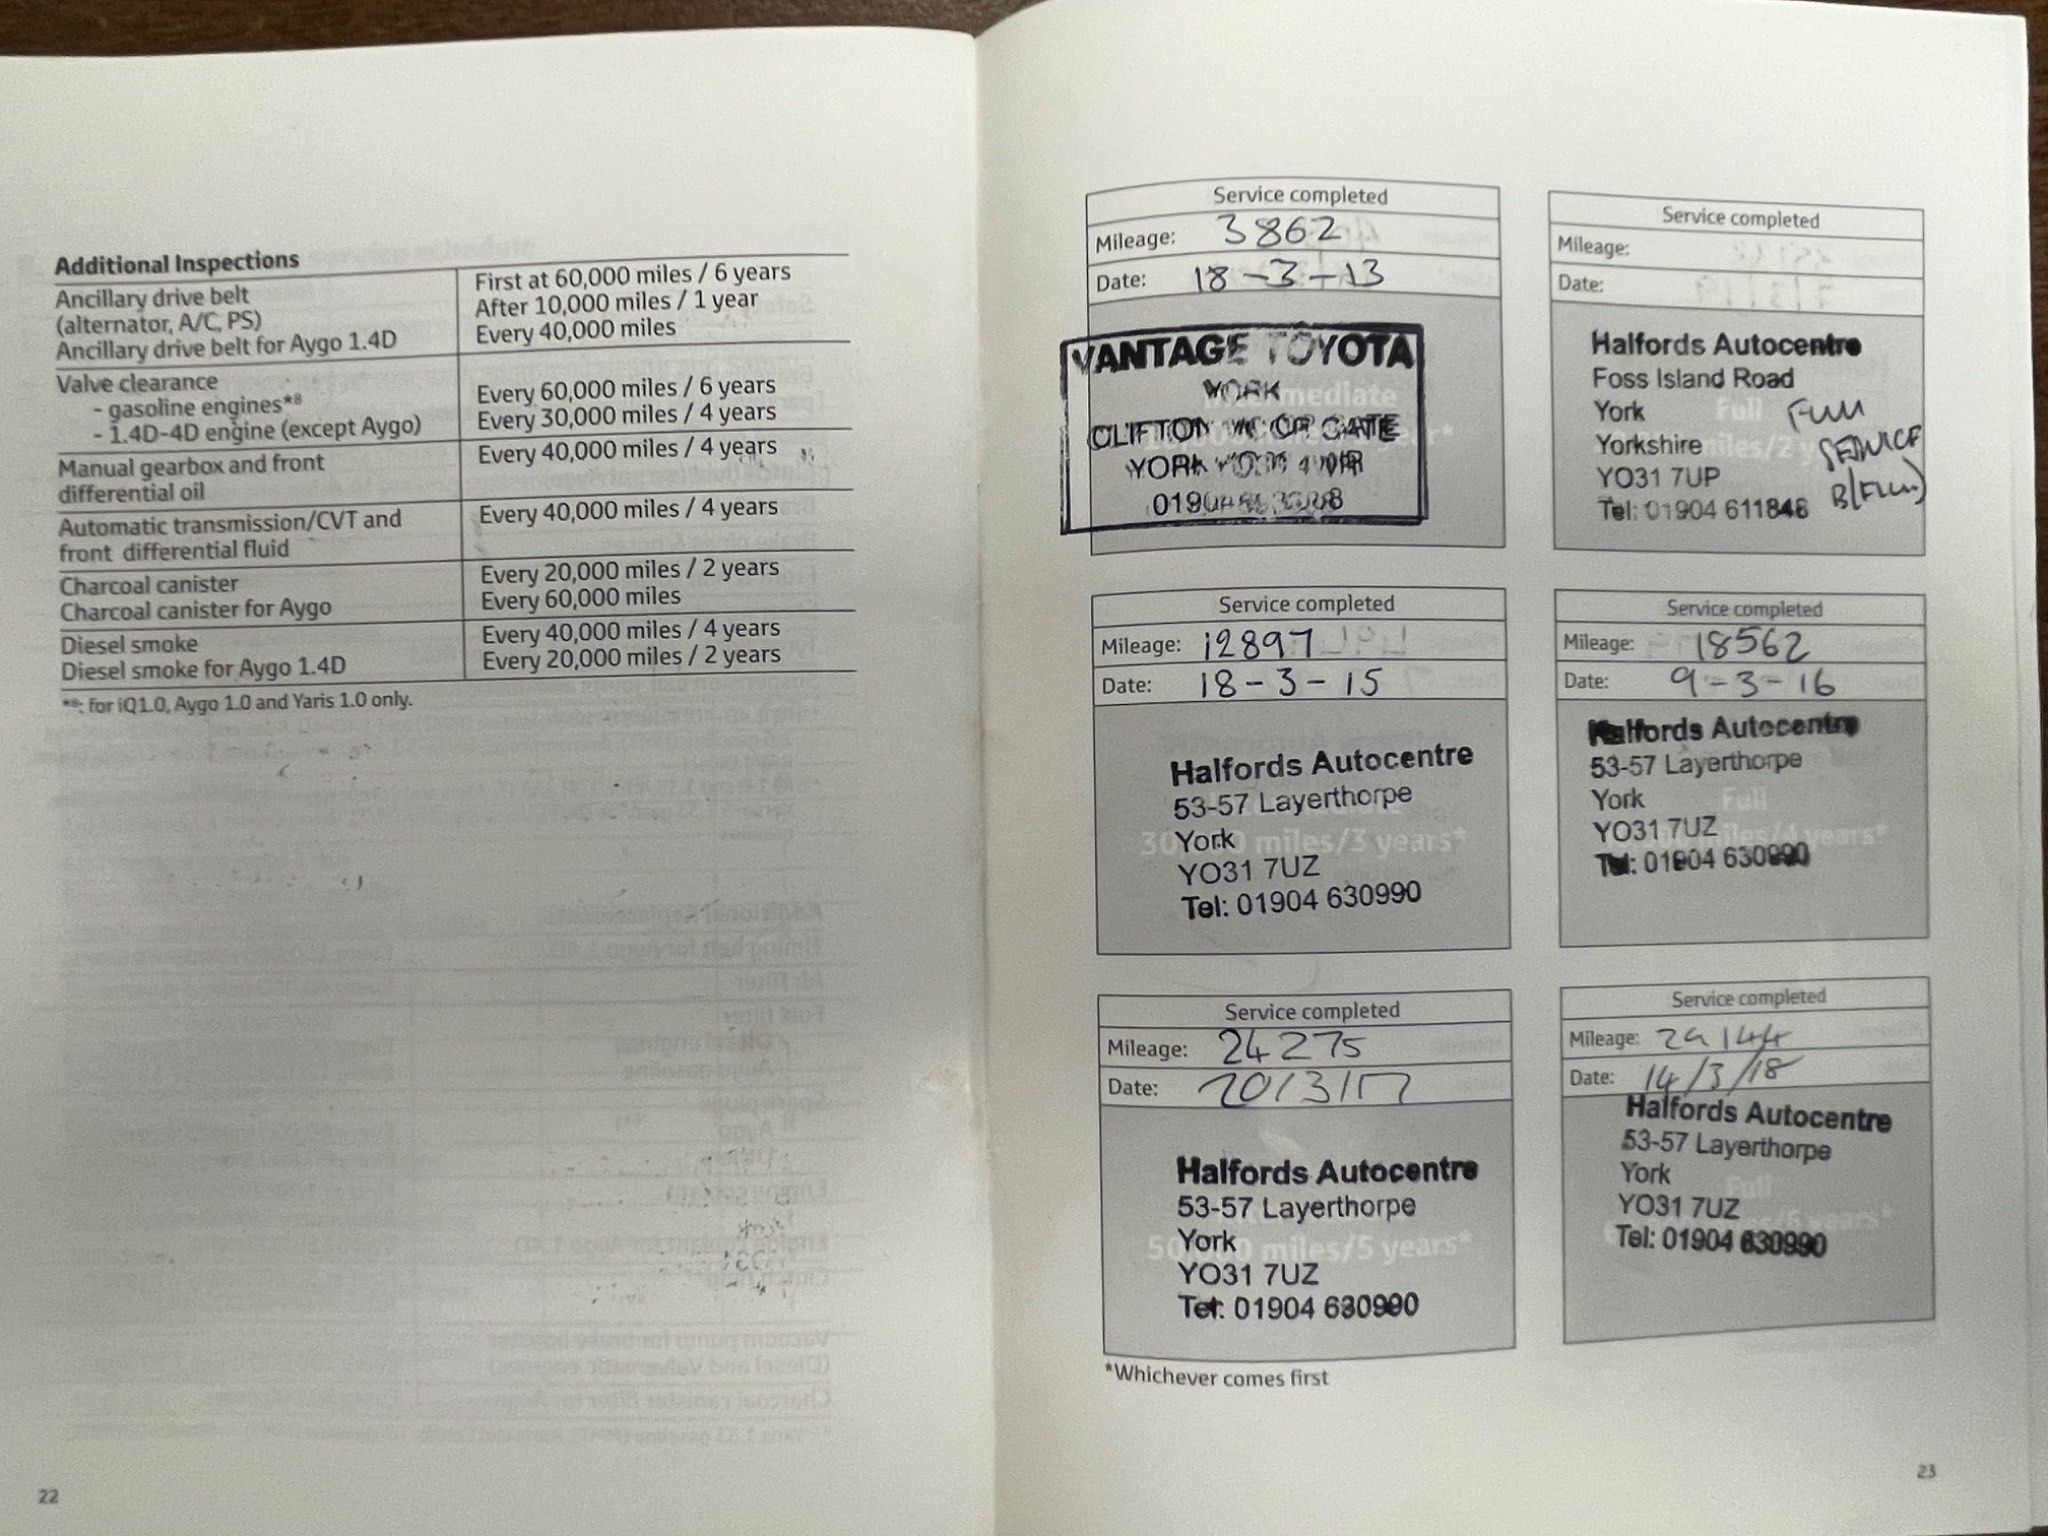 Additional Inspections
Ancillary drive belt
(alternator, A/C, PS)
Ancillary drive belt for Aygo 1.4D
First at 60,000 miles / 6 years
After 10,000 miles / 1 year
Every 40,000 miles
Valve clearance
- gasoline engines*8
- 1.4D-4D engine (except Aygo)
Every 60,000 miles / 6 years
Every 30,000 miles / 4 years
Manual gearbox and front
differential oil
Every 40,000 miles / 4 years
Automatic transmission/CVT and
front differential fluid
Every 40,000 miles / 4 years
Charcoal canister
Charcoal canister for Aygo
Every 20,000 miles / 2 years
Every 60,000 miles
Diesel smoke
Diesel smoke for Aygo 1.4D
Every 40,000 miles / 4 years
Every 20,000 miles / 2 years
*8: for iQ1.0, Aygo 1.0 and Yaris 1.0 only.
22
Service completed
Mileage: 3862
Date: 18-3-13
VANTAGE TOYOTA
YORK
CLIFTON GATE
YORK
Service completed
Mileage:
Date:
Halfords Autocentre
Foss Island Road
York
Yorkshire
YO31 7UP
Tel: 01904 611848
Full
FULL
SERVICE
B(FULL)
Service completed
Mileage: 12897
Date: 18-3-15
Halfords Autocentre
53-57 Layerthorpe
York
YO31 7UZ
Tel: 01904 630990
miles/3 years*
Service completed
Mileage: 18562
Date: 9-3-16
Halfords Autocentre
53-57 Layerthorpe
York
YO31 7UZ
Tel: 01904 630990
Full
miles/4 years*
Service completed
Mileage: 24275
Date: 20/3/17
Halfords Autocentre
53-57 Layerthorpe
York
YO31 7UZ
Tel: 01904 630990
miles/5 years*
Service completed
Mileage: 29144
Date: 14/3/18
Halfords Autocentre
53-57 Layerthorpe
York
YO31 7UZ
Tel: 01904 630990
Full
years*
*Whichever comes first
23